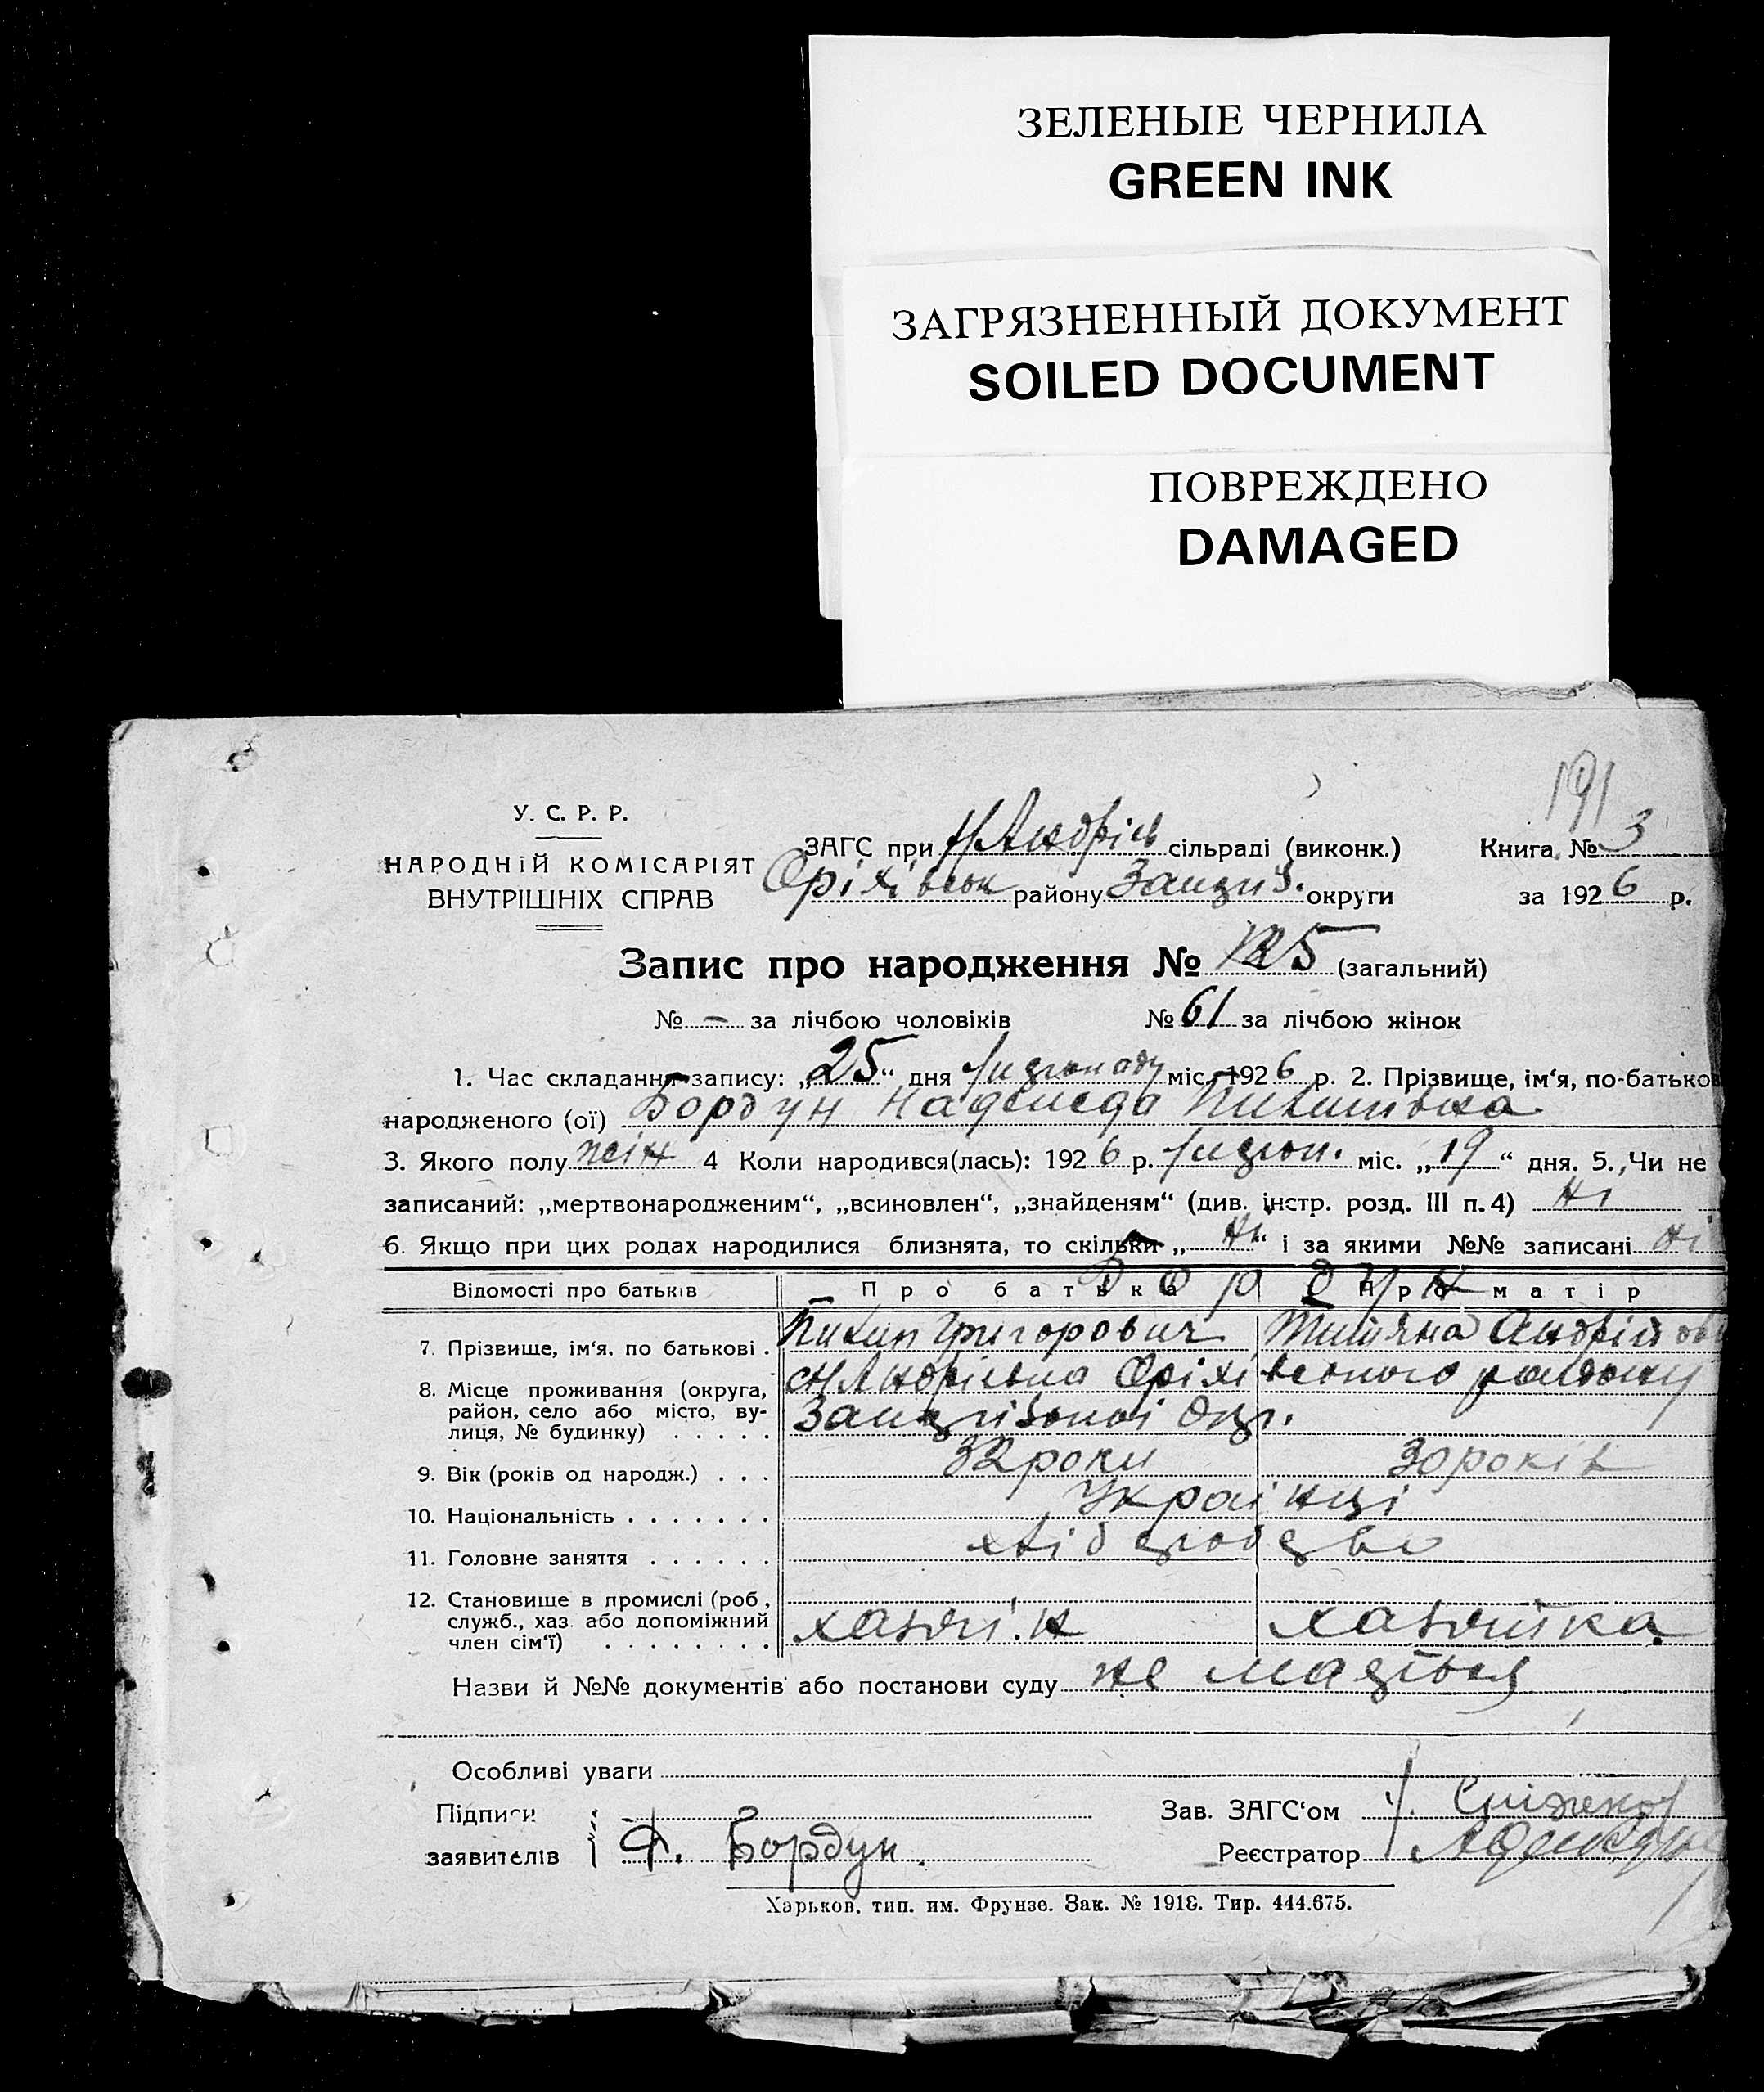 ЗЕЛЕНЫЕ ЧЕРНИЛА
GREEN INK
ЗАГРЯЗНЕННЫЙ ДОКУМЕНТ
SOILED DOCUMENT
ПОВРЕЖДЕНО
DAMAGED
191
У. С. Р. Р.
НАРОДНІЙ КОМІСАРІЯТ
ВНУТРІШНІХ СПРАВ
ЗАГС при Н Андріів сільраді (виконк.)
Оріхівськ району Запциз. округи
Книга № 3
за 1926 р.
Запис про народження № 125 (загальний)
№ – за лічбою чоловіків № 61 за лічбою жінок
1. Час складання запису: „25“ дня міс. 1926 р. 2. Прізвище, ім‘я, по-батьков
народженого (ої) Бордун Надежда Пилипівна
3. Якого полу жін 4 Коли народився(лась): 1926 р. міс. „19“ дня. 5. Чи не
записаний: „мертвонародженим“, „всиновлен“, „знайденям“ (див. інстр. розд. III п. 4) ні
6. Якщо при цих родах народилися близнята, то скільки „ні“ і за якими №№ записані ні
Відомості про батьків Про батька Про матір
Бордун
7. Прізвище, ім‘я, по батькові . Пилип Григорович Титяна Андрійов
8. Місце проживання (округа, район, село або місто, вулиця, № будинку) . . . . . Н Андріівка Оріхівського району
окр.
9. Вік (років од народж.) . . . 32 роки 30 років
10. Національність . . . . . . . Украінці
11. Головне заняття . . . . . . хліборобство
12. Становище в промислі (роб., служб., хаз. або допоміжний член сім‘ї) . . . . . . . . хазяін хазяйка
Назви й №№ документів або постанови суду не мається
Особливі уваги
Підписи
заявителів Ф. Бордун.
Зав. ЗАГС‘ом
Реєстратор
Харьков, тип. им. Фрунзе. Зак. № 1918. Тир. 444.675.